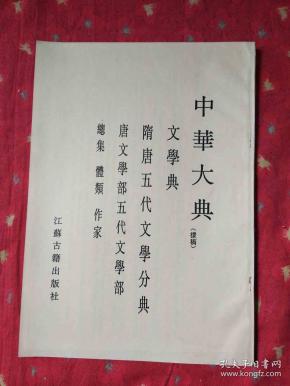 中華大典(樣稿)
文學典
隋唐五代文學分典
唐文學部五代文學部
總集 體類 作家
江蘇古籍出版社
孔夫子旧书网